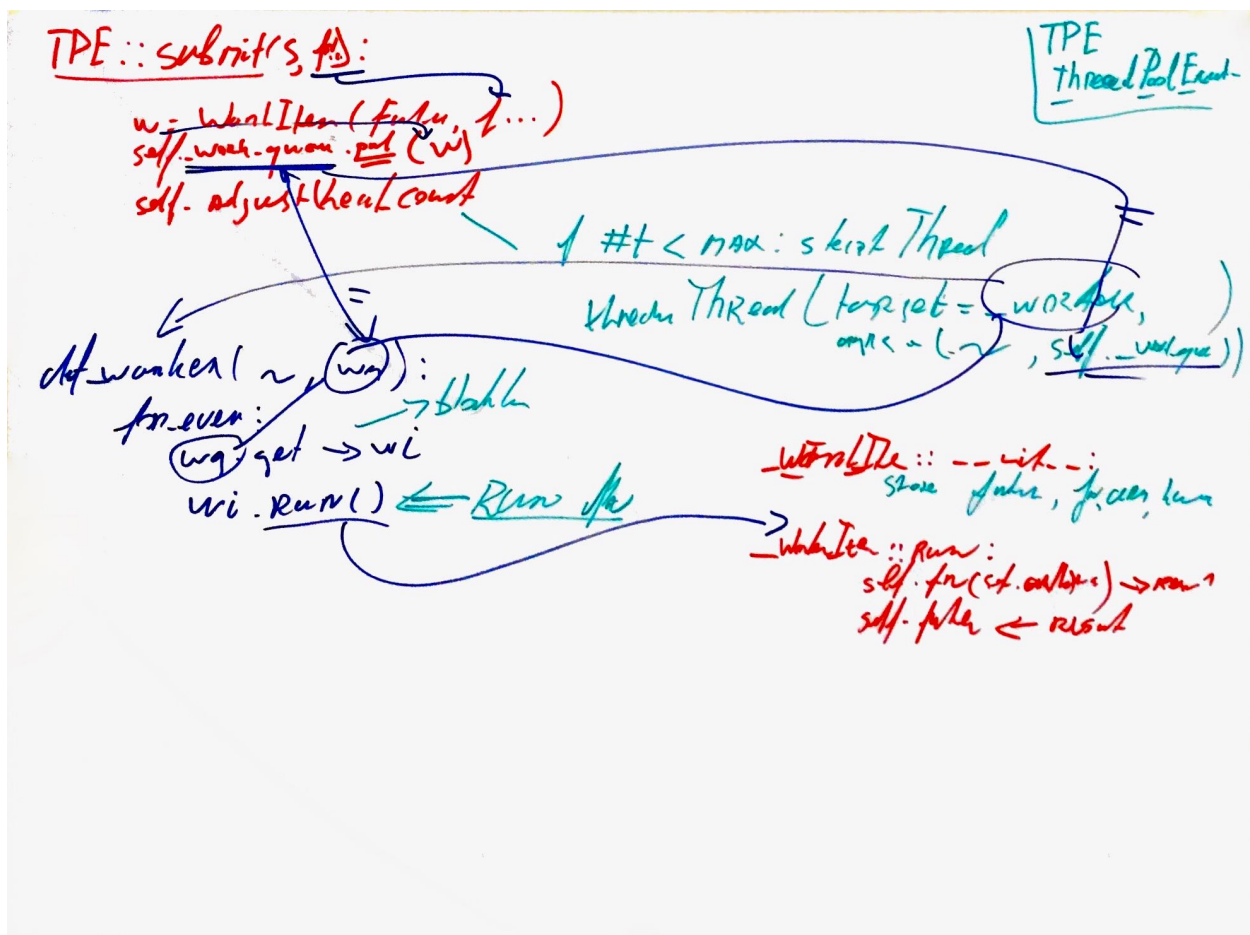 TPE :: submit(s, fn):
w = WorkItem(Futu, f...)
self._work_queue.put(w)
self.adjust thread count
TPE
ThreadPoolExecut-
if #t < MAX: start Thread
Thread(target = _worker,
args = (~, self._work_que))
def_worker(~, wq):
for_ever:
wq.get → wi
wi.RUN() ⇐ RUN
_WorkIte :: __init__:
store futur, fn, args,
_WorkIte :: Run:
self.fn(
self.futur ← result